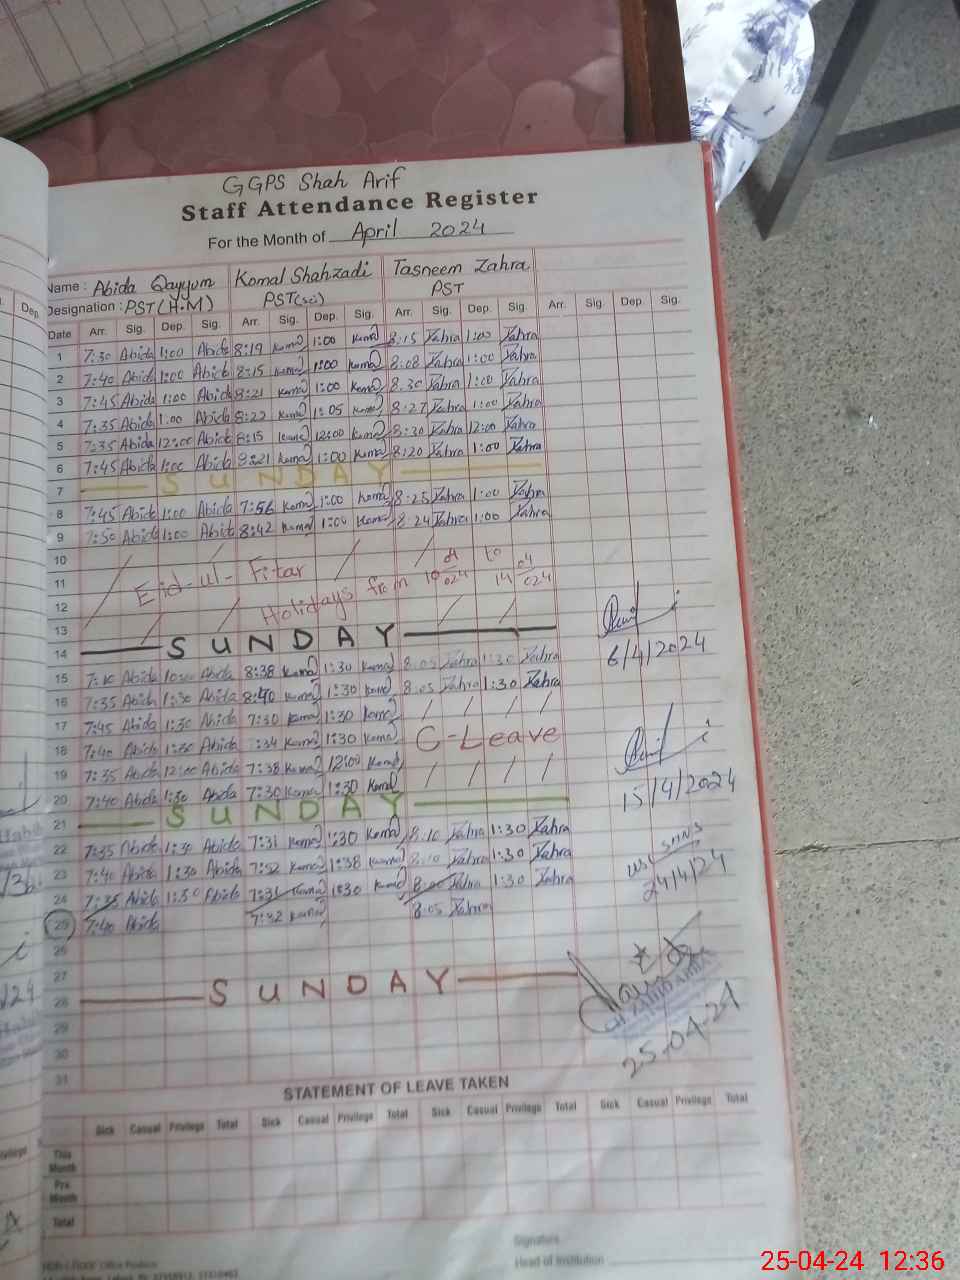 GGPS Shah Arif
Staff Attendance Register
For the Month of April 2024
Name : Abida Qayyum Komal Shahzadi Tasneem Zahra
Designation : PST (H.M) PST(sci) PST
Date Arr. Sig. Dep. Sig. Arr. Sig. Dep. Sig. Arr. Sig. Dep. Sig. Arr. Sig. Dep. Sig.
1 7:30 Abida 1:00 Abida 8:19 Komal 1:00 Komal 8:15 Zahra 1:00 Zahra
2 7:40 Abida 1:00 Abida 8:15 Komal 1:00 Komal 8:08 Zahra 1:00 Zahra
3 7:45 Abida 1:00 Abida 8:21 Komal 1:00 Komal 8:30 Zahra 1:00 Zahra
4 7:35 Abida 1:00 Abida 8:22 Komal 1:05 Komal 8:27 Zahra 1:00 Zahra
5 7:35 Abida 12:00 Abida 8:15 Komal 12:00 Komal 8:30 Zahra 12:00 Zahra
6 7:45 Abida 1:00 Abida 8:21 Komal 1:00 Komal 8:20 Zahra 1:00 Zahra
7 SUNDAY
8 7:45 Abida 1:00 Abida 7:56 Komal 1:00 Komal 8:25 Zahra 1:00 Zahra
9 7:50 Abida 1:00 Abida 8:42 Komal 1:00 Komal 8:24 Zahra 1:00 Zahra
10
11 Eid-ul-Fitar Holidays from 10/04/024 to 14/04/024
12
13
14 SUNDAY
6/4/2024
15 7:10 Abida Abida 8:38 Komal 1:30 Komal 8:05 Zahra 1:30 Zahra
16 7:35 Abida 1:30 Abida 8:40 Komal 1:30 Komal 8:05 Zahra 1:30 Zahra
17 7:45 Abida 1:30 Abida 7:30 Komal 1:30 Komal
18 7:40 Abida 1:30 Abida 7:34 Komal 1:30 Komal C-Leave
19 7:35 Abida 12:00 Abida 7:38 Komal 12:00 Komal
20 7:40 Abida 1:30 Abida 7:30 Komal 1:30 Komal
15/4/2024
21 SUNDAY
22 7:35 Abida 1:30 Abida 7:31 Komal 1:30 Komal 8:10 Zahra 1:30 Zahra
23 7:40 Abida 1:30 Abida 7:52 Komal 1:38 Komal 8:10 Zahra 1:30 Zahra
24 7:35 Abida 1:30 Abida 7:31 Komal 1:30 Komal 8:00 Zahra 1:30 Zahra
24/4/24
25 7:40 Abida 7:32 Komal 8:05 Zahra
26
27
28 SUNDAY
29
30
31
25-04-24
STATEMENT OF LEAVE TAKEN
Sick Casual Privilege Total Sick Casual Privilege Total Sick Casual Privilege Total Sick Casual Privilege Total
This Month
Pre. Month
Total
Signature
Head of Institution
25-04-24 12:36